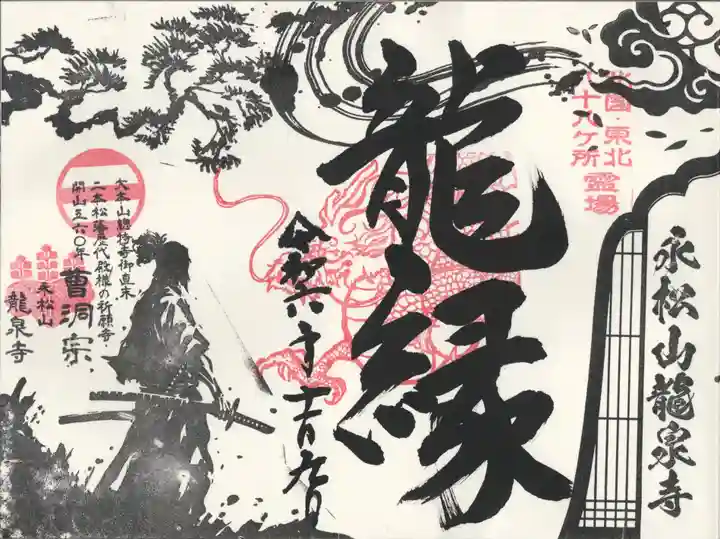 北国・東北
八十八ケ所 霊場
永松山龍泉寺
龍縁
令和六年十一月九日
大本山總持寺御直末
二本松藩歴代殿様の祈願寺
開山五六〇年 曹洞宗
永松山
龍泉寺